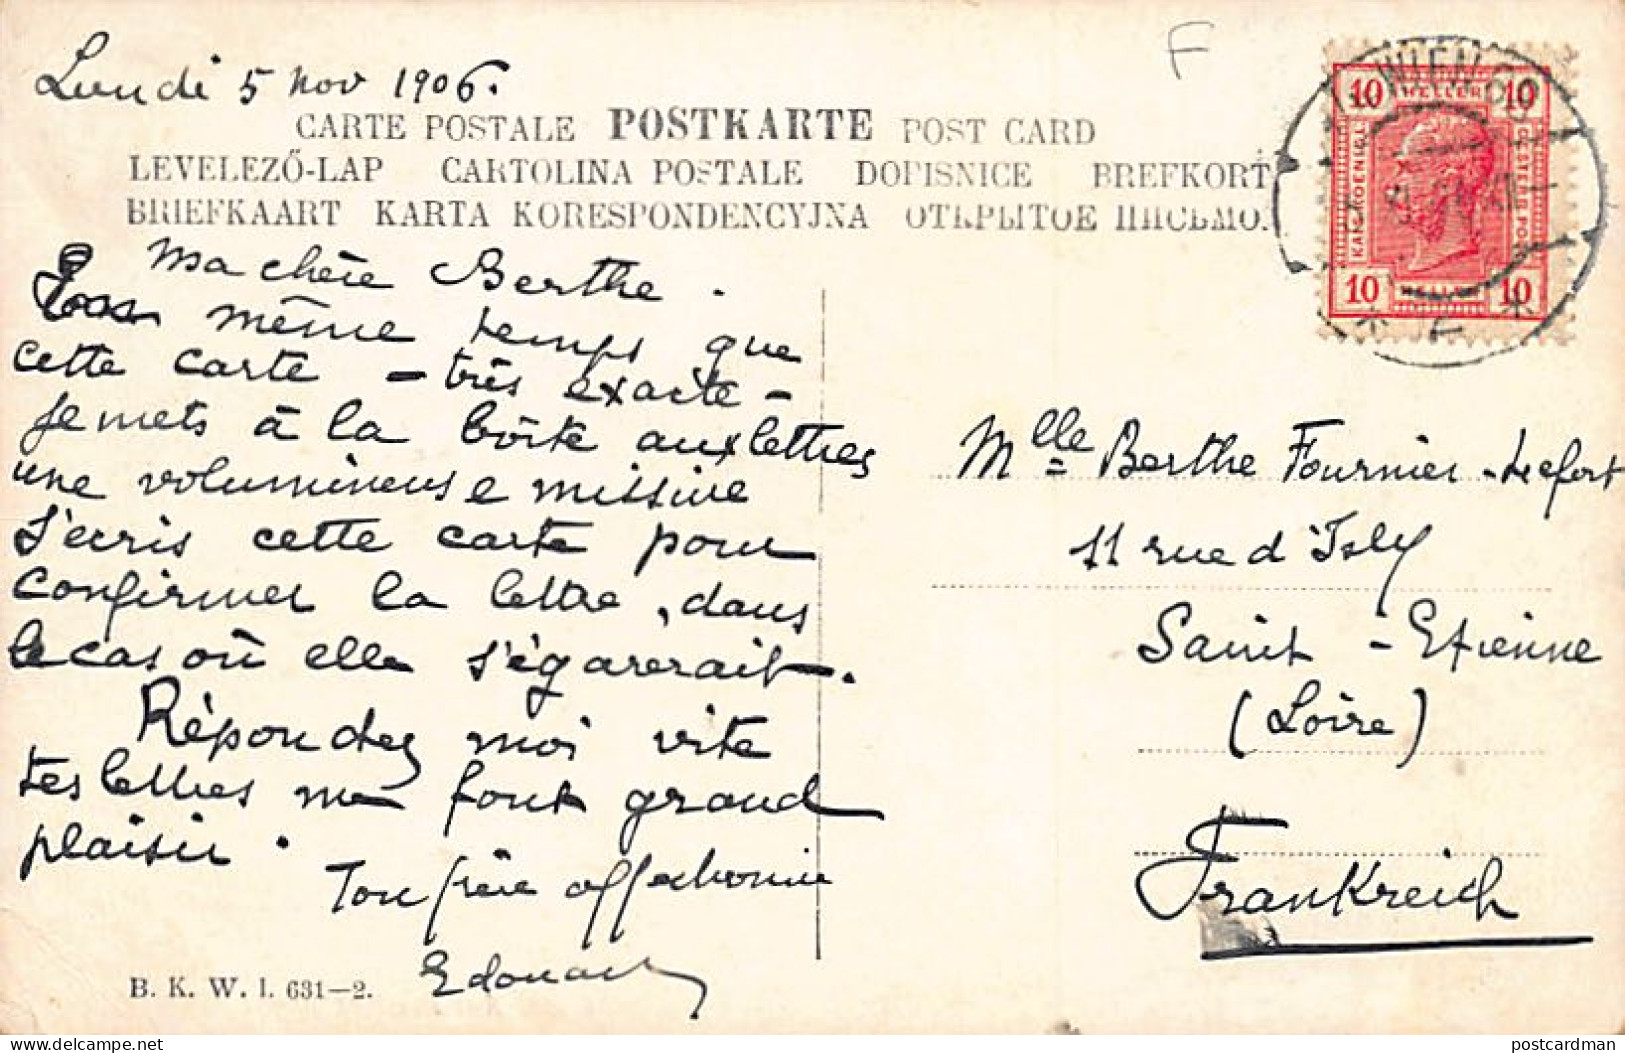 F
Lundi 5 nov 1906.
CARTE POSTALE POSTKARTE POST CARD
LEVELEZŐ-LAP CARTOLINA POSTALE DOPISNICE BREFKORT
BRIEFKAART KARTA KORESPONDENCYJNA ОТКРЫТОЕ ПИСЬМО.
10 HELLER 10
KAIS. KOENIGL.
OESTERR. POST
10 10
WIEN
Ma chère Berthe.
En même temps que
cette carte - très exacte -
je mets à la boîte aux lettres
une volumineuse missive
J'écris cette carte pour
confirmer la lettre, dans
le cas où elle s'égarerait.
Répondez moi vite
tes lettres me font grand
plaisir.
Ton frère affectionné
Edouard
Mlle Berthe Fournier-Lefort
11 rue d'Isly
Saint-Etienne
(Loire)
Frankreich
B. K. W. I. 631-2.
delcampe.net
postcardman